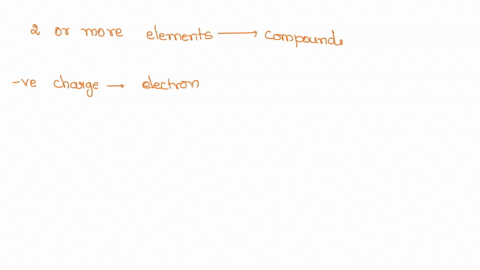 2 or more elements → compounds
-ve charge → electron